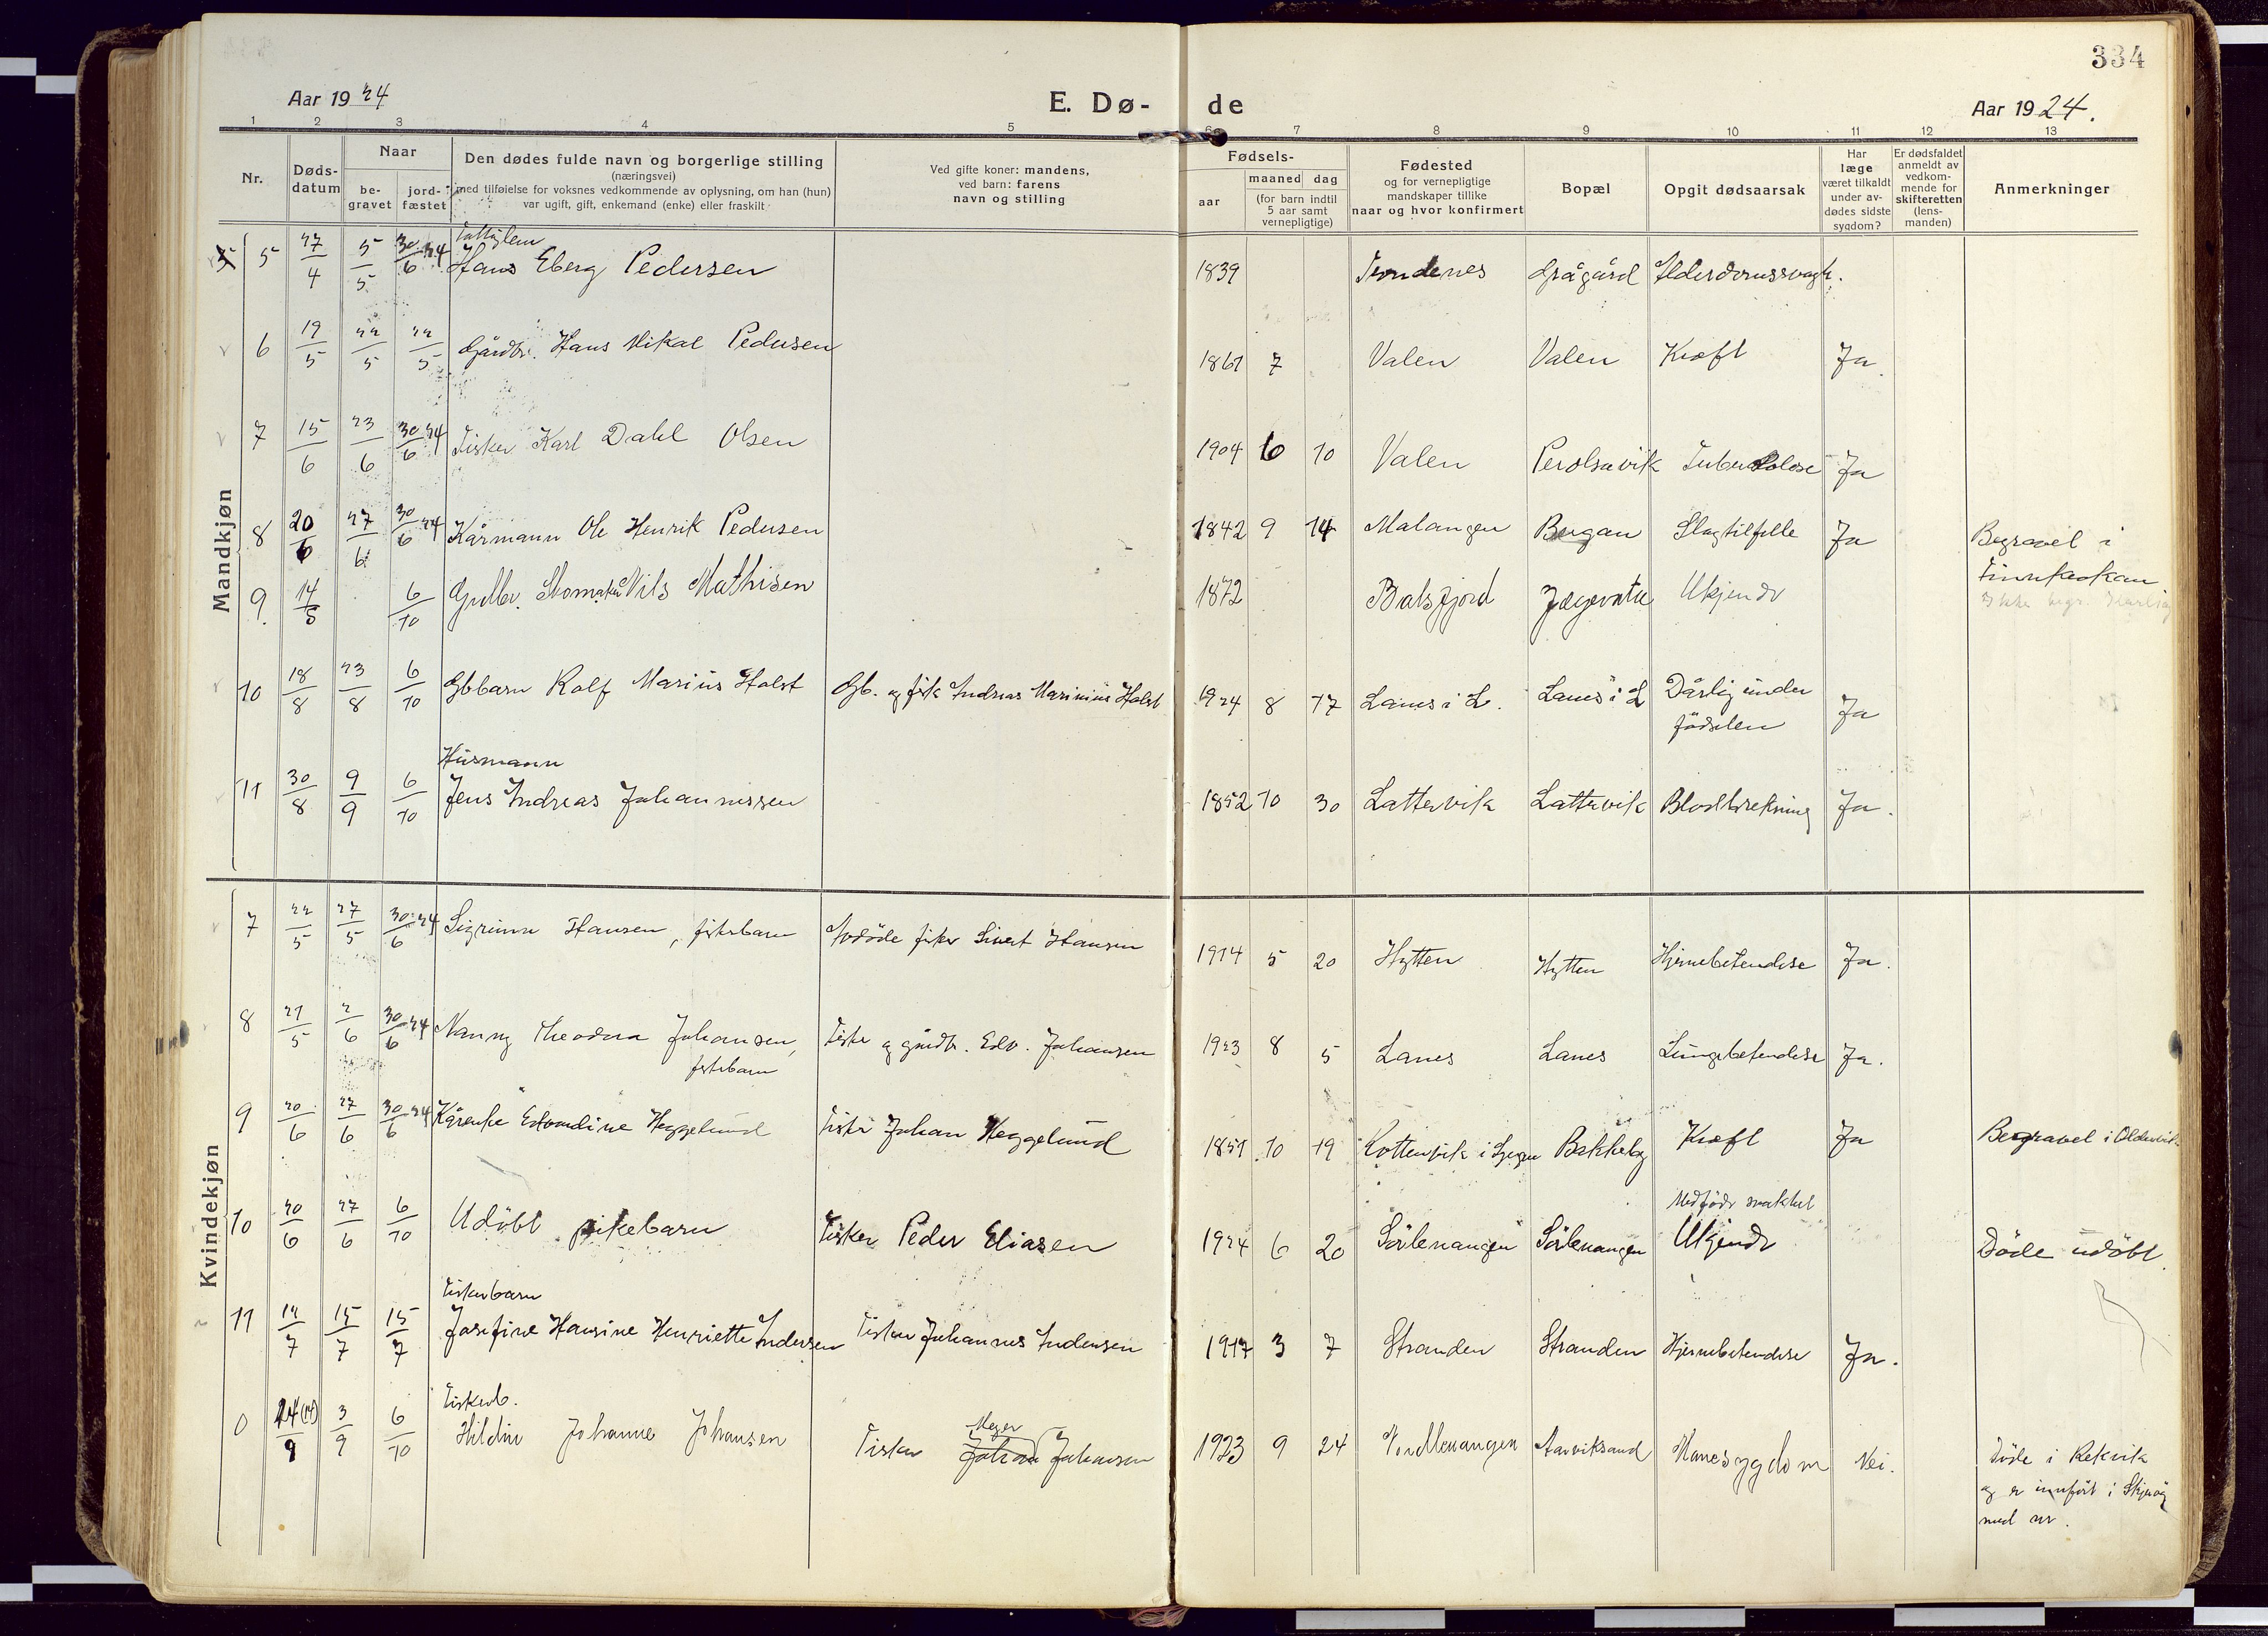 334
Aar 1924
E. Dø-
de
Aar 1924.
1 2 3 4 5 6 7 8 9 10 11 12 13
Nr.
Døds-datum
Naar
be-gravet
jord-fæstet
Den dødes fulde navn og borgerlige stilling
(næringsvei)
med tilføielse for voksnes vedkommende av oplysning, om han (hun)
var ugift, gift, enkemand (enke) eller fraskilt
Ved gifte koner: mandens,
ved barn: farens
navn og stilling
Fødsels-
aar
maaned dag
(for barn indtil
5 aar samt
vernepligtige)
Fødested
og for vernepligtige
mandskaper tillike
naar og hvor konfirmert
Bopæl
Opgit dødsaarsak
Har
læge
været tilkaldt
under av-
dødes sidste
sygdom?
Er dødsfaldet
anmeldt av
vedkom-
mende for
skifteretten
(lens-
manden)
Anmerkninger
Mandkjøn
5 27/4 5/5 30/6 24 Hans Eberg Pedersen 1839 Grågård
6 19/5 22/5 22/5 Gårdbr. Hans Mikal Pedersen 1861 7 Valen Valen Kræft Ja.
7 15/6 23/6 30/6 24 Fisker Karl Dahl Olsen 1904 6 10 Valen Perolsavik Tuberkolose Ja
8 20/6 27/6 30/6 24 Kårmann Ole Henrik Pedersen 1842 9 14 Malangen Bergan Slagtilfelle Ja Begravet i
9. 14/5 6/10 Nils Mathisen 1872 Balsfjord Jægervatn Ukjendt
Finnkrokan
10 18/8 23/8 6/10 Gbbarn Rolf Marius Holst Gb. og fisk Andreas Marinius Holst 1924 8 17 Lanes i L. Lanes i L Dårlig under
fødselen Ja
Husmann
11 30/8 9/9 6/10 Jens Andreas Johannessen 1852 10 30 Lattervik Lattervik Blodbrekning Ja.
Kvindekjøn
7 22/5 27/5 30/6 24 Sigrunn Hansen, fiskerbarn Avdöde fisker Sivert Hansen 1914 5 20 Hytten Hytten Hjernebetendelse Ja.
8 21/5 2/6 30/6 24 Nanny Theodora Johansen, Fisker og gårdbr. Edv. Johansen 1923 8 5 Lanes Lanes Lungebetendelse Ja.
fiskerbarn
9 20/6 27/6 30/6 24 Kårenke Edvardine Heggelund Fisker Johan Heggelund 1851 10 19 Kottenvik i Lyngen Bakkeby Kræft Ja Begravet i Oldervik
10 20/6 27/6 6/10 Udöbt pikebarn Fisker Peder Eliasen 1924 6 20 Sörlenangen Sörlenangen Ukjendt Döde udöbt.
Fiskerbarn
11 14/7 15/7 15/7 Josefine Hansine Henriette Andersen Fisker Johannes Andersen 1917 3 7 Stranden Stranden Hjernebetendelse Ja.
Fiskerb.
0 24 (14)/9 3/9 6/10 Hildur Johanne Johansen Fisker Meyer Johan Johansen 1923 9 24 Nordlenangen Aarviksand Mavesygdom Nei.
Döde i Rekvik
og er innfört i Skjervöy
med nr.